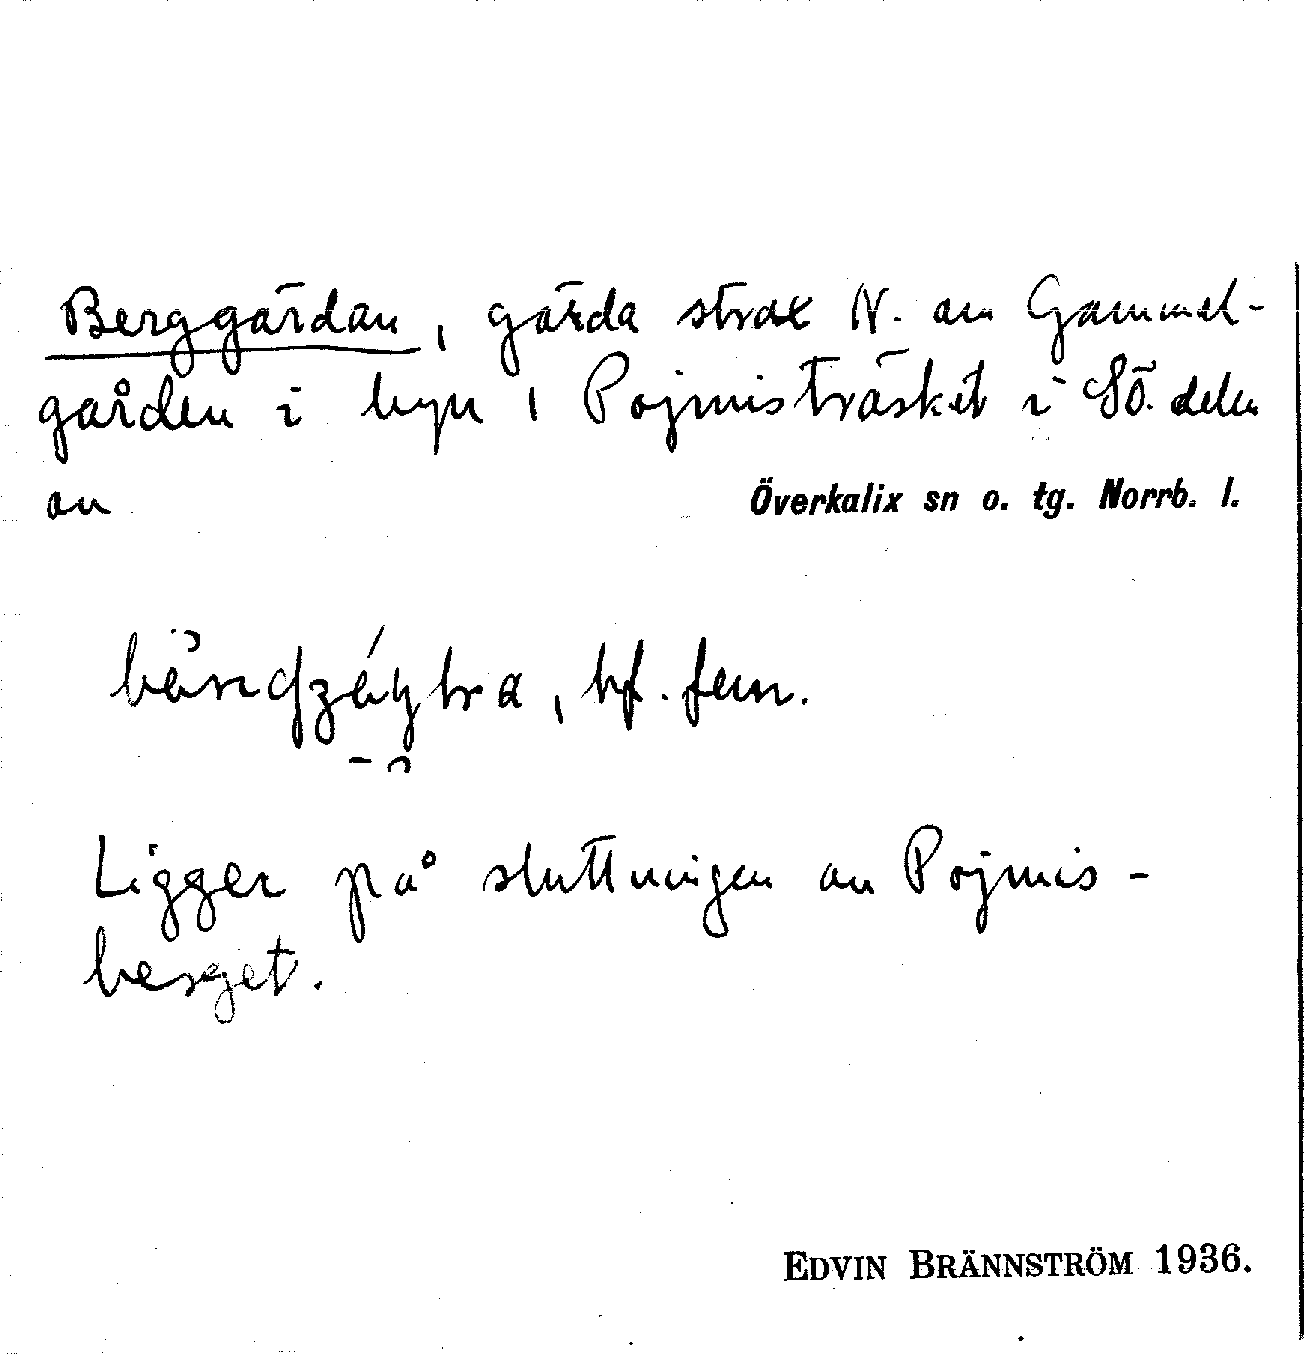 Berggärdan, gärda strax N. av Gammel-
gården i byn i Pojmisträsket i SÖ. delen
av Överkalix sn o. tg. Norrb. l.
bf. fem.
Ligger på sluttningen av Pojmis-
berget.
EDVIN BRÄNNSTRÖM 1936.